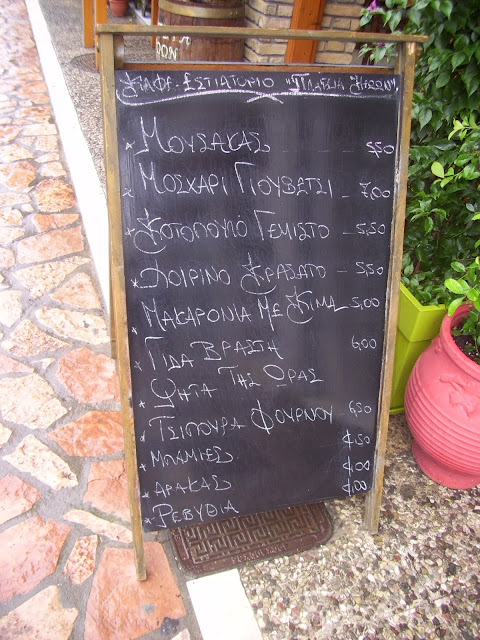 DON
ΚΑΦΕ-ΕΣΤΙΑΤΟΡΙΟ "ΠΛΑΤΕΙΑ ΗΡΩΩΝ"
* ΜΟΥΣΑΚΑΣ 5,50
* ΜΟΣΧΑΡΙ ΓΙΟΥΒΕΤΣΙ - 7,00
* ΚΟΤΟΠΟΥΛΟ ΓΕΜΙΣΤΟ - 5,50
* ΧΟΙΡΙΝΟ ΚΡΑΣΑΤΟ - 5,50
* ΜΑΚΑΡΟΝΙΑ ΜΕ ΚΙΜΑ 5,00
* ΓΙΔΑ ΒΡΑΣΤΗ 6,00
* ΨΗΤΑ ΤΗΣ ΩΡΑΣ
* ΤΣΙΠΟΥΡΑ ΦΟΥΡΝΟΥ - 6,50
* ΜΠΑΜΙΕΣ 4,50
* ΑΡΑΚΑΣ 4,00
* ΡΕΒΥΘΙΑ 4,00